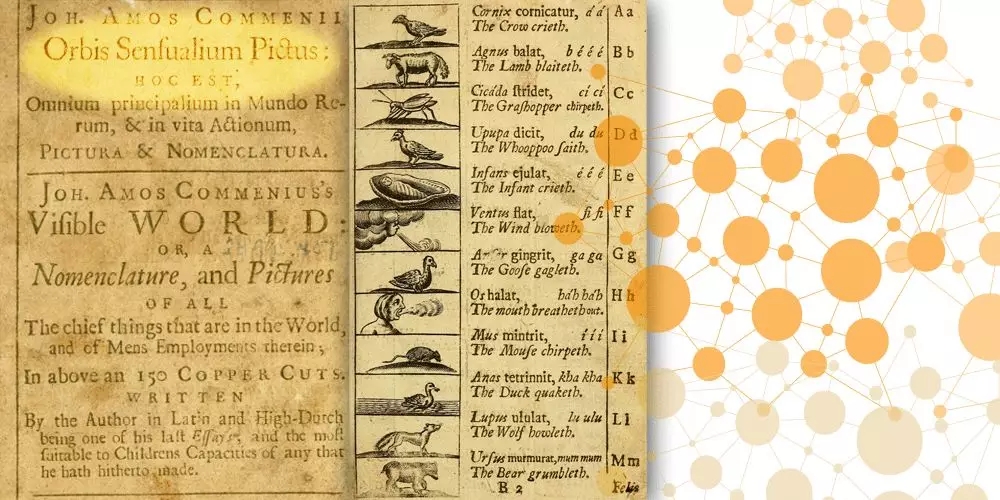 JOH. AMOS COMMENII
Orbis Senſualium Pictus:
HOC EST,
Omnium principalium in Mundo Re-
rum, & in vita Actionum,
PICTURA & NOMENCLATURA.
JOH. AMOS COMMENIUS'S
Viſible WORLD:
OR, A
Nomenclature, and Pictures
OF ALL
The chief things that are in the World,
and of Mens Employments therein;
In above an 150 COPPER CUTS.
WRITTEN
By the Author in Latin and High-Dutch
being one of his laſt Eſſays, and the moſt
ſuitable to Childrens Capacities of any that
he hath hitherto made.
Cornix cornicatur, á á A a
The Crow crieth.
Agnus balat, b é é é B b
The Lamb blaiteth.
Cicáda ſtridet, ci ci C c
The Graſhopper chirpeth.
Upupa dicit, du du D d
The Whooppoo ſaith.
Infans ejulat, é é é E e
The Infant crieth.
Ventus flat, fi fi F f
The Wind bloweth.
gingrit, ga ga G g
The Gooſe gagleth.
Os halat, há'h há'h H h
The mouth breatheth out.
Mus mintrit, í í í I i
The Mouſe chirpeth.
Anas tetrinnit, kha kha K k
The Duck quaketh.
Lupus ululat, lu ulu L l
The Wolf howleth.
Urſus murmurat, mum mum M m
The Bear grumbleth.
B 2 Felis